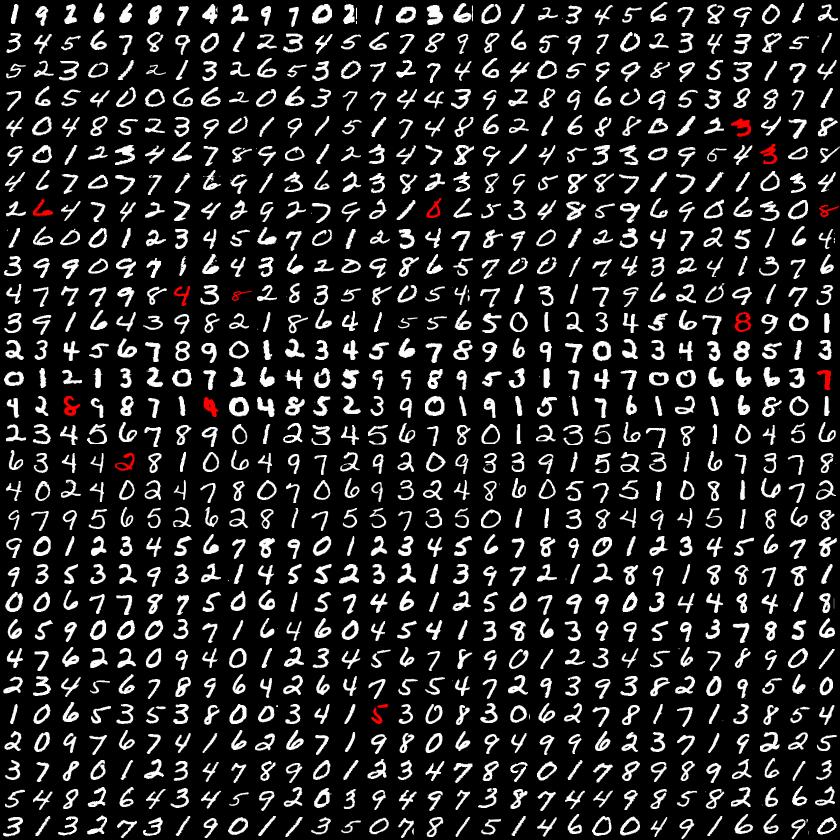 1 9 2 6 6 8 7 4 2 9 7 0 2 1 0 3 6 0 1 2 3 4 5 6 7 8 9 0 1 2
3 4 5 6 7 8 9 0 1 2 3 4 5 6 7 8 9 8 6 5 9 7 0 2 3 4 3 8 5 1
5 2 3 0 1 2 1 3 2 6 5 3 0 7 2 7 4 6 4 0 5 9 9 8 9 5 3 1 7 4
7 6 5 4 0 0 6 6 2 0 6 3 7 7 4 4 3 9 2 8 9 6 0 9 5 3 8 8 7 1
4 0 4 8 5 2 3 9 0 1 9 1 5 1 7 4 8 6 2 1 6 8 8 0 1 2 3 4 7 8
9 0 1 2 3 4 6 7 8 9 0 1 2 3 4 7 8 9 1 4 5 3 3 0 9 5 4 3 0 8
4 6 7 0 7 7 1 6 9 1 3 6 2 3 8 2 3 8 9 5 8 8 7 1 7 1 1 0 3 4
2 6 4 7 4 2 7 4 2 9 2 7 9 2 1 0 6 5 3 4 8 5 9 6 9 0 6 3 0 8
1 6 0 0 1 2 3 4 5 6 7 0 1 2 3 4 7 8 9 0 1 2 3 4 7 2 5 1 6 4
3 9 9 0 9 7 1 6 4 3 6 2 0 9 8 6 5 7 0 0 1 7 4 3 2 4 1 3 7 6
4 7 7 7 9 8 4 3 8 2 8 3 5 8 0 5 4 7 1 3 1 7 9 6 2 0 9 1 7 3
3 9 1 6 4 3 9 8 2 1 8 6 4 1 5 5 6 5 0 1 2 3 4 5 6 7 8 9 0 1
2 3 4 5 6 7 8 9 0 1 2 3 4 5 6 7 8 9 6 9 7 0 2 3 4 3 8 5 1 3
0 1 2 1 3 2 0 7 2 6 4 0 5 9 9 8 9 5 3 1 7 4 7 0 0 6 6 6 3 7
9 2 8 9 8 7 1 9 0 4 8 5 2 3 9 0 1 9 1 5 1 7 6 1 2 1 6 8 0 1
2 3 4 5 6 7 8 9 0 1 2 3 4 5 6 7 8 0 1 2 3 5 6 7 8 1 0 4 5 6
6 3 4 4 2 8 1 0 6 4 9 7 2 9 2 0 9 3 3 9 1 5 2 3 1 6 7 3 7 8
4 0 2 4 0 2 4 7 8 0 7 0 6 9 3 2 4 8 6 0 5 7 5 1 0 8 1 6 7 2
9 7 9 5 6 5 2 6 2 8 1 7 5 5 7 3 5 0 1 1 3 8 4 9 4 5 1 8 6 8
9 0 1 2 3 4 5 6 7 8 9 0 1 2 3 4 5 6 7 8 9 0 1 2 3 4 5 6 7 8
9 3 5 3 2 9 3 2 1 4 5 5 2 3 2 1 3 9 7 2 1 2 8 9 1 8 8 7 8 1
0 0 6 7 7 8 7 5 0 6 1 5 7 4 6 1 2 5 0 7 9 9 0 3 4 4 8 4 1 8
6 5 9 0 0 0 3 7 1 6 4 6 0 4 5 4 1 3 8 6 3 9 9 5 9 3 7 8 5 6
4 7 6 2 2 0 9 4 0 1 2 3 4 5 6 7 8 9 0 1 2 3 4 5 6 7 8 9 0 1
2 3 4 5 6 7 8 9 6 4 2 6 4 7 5 5 4 7 2 9 3 9 3 8 2 0 9 5 6 0
1 0 6 5 3 5 3 8 0 0 3 4 1 5 3 0 8 3 0 6 2 7 8 1 7 1 3 8 5 4
2 0 9 7 6 7 4 1 6 2 6 7 1 9 8 0 6 9 4 9 9 6 2 3 7 1 9 2 2 5
3 7 8 0 1 2 3 4 7 8 9 0 1 2 3 4 7 8 9 0 1 7 8 9 8 9 2 6 1 3
5 4 8 2 6 4 3 4 5 9 2 0 3 9 4 9 7 3 8 7 4 4 9 8 5 8 2 6 6 2
3 1 3 2 7 3 1 9 0 1 1 3 5 0 7 8 1 5 1 4 6 0 0 4 9 1 6 6 9 0